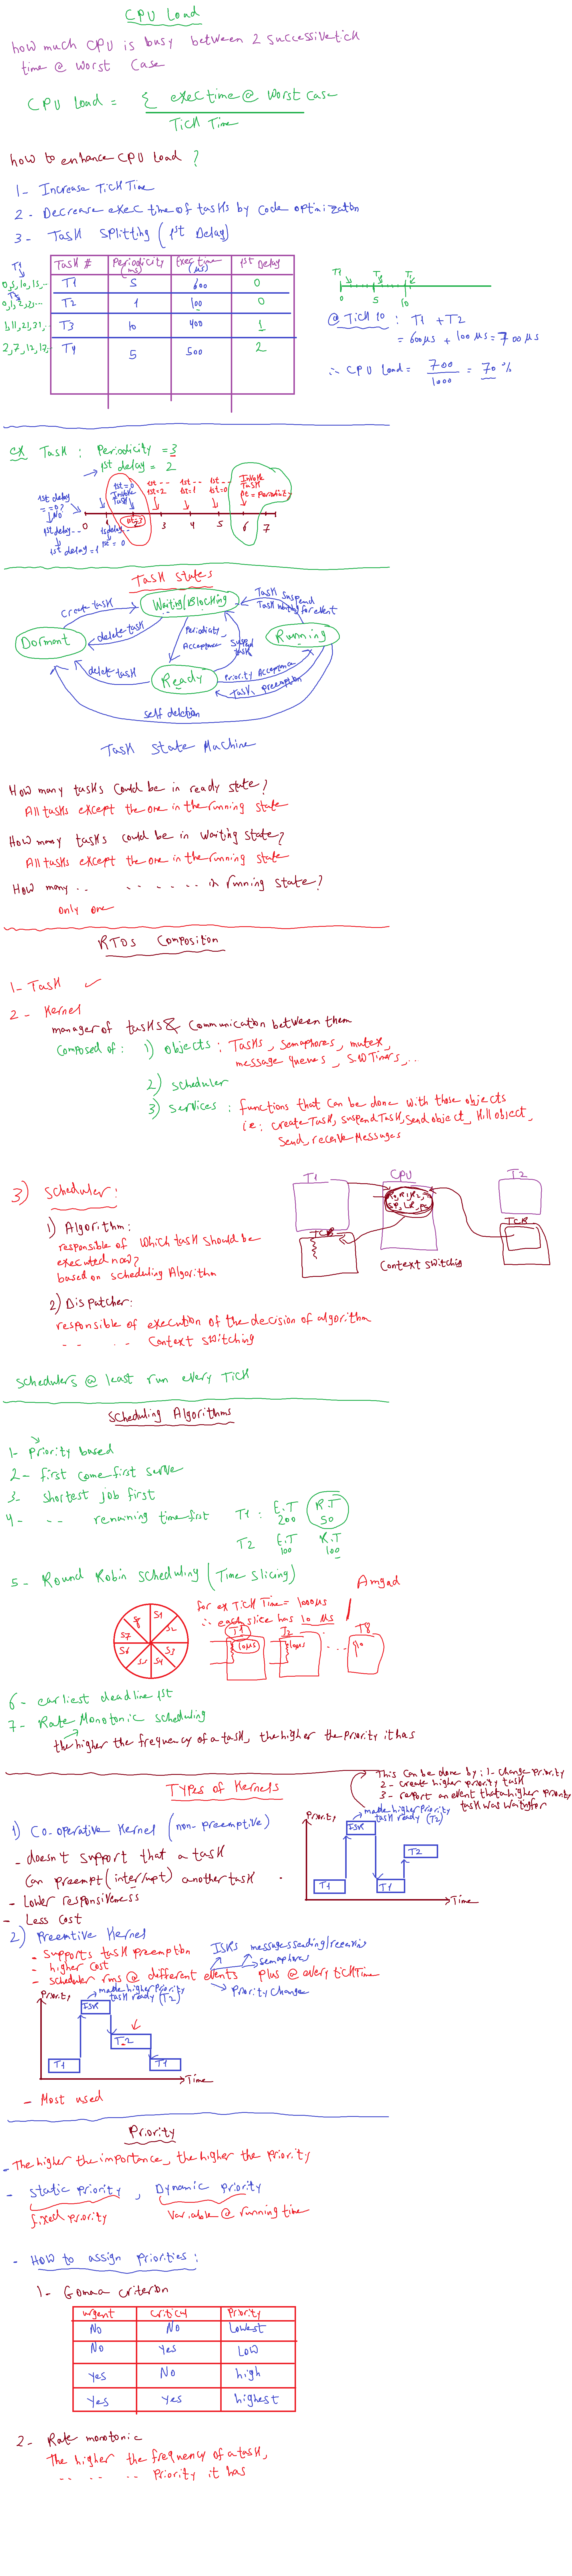 CPU Load
how much CPU is busy between 2 successive tick
time @ worst case
CPU load = Σ exec time @ worst case
Tick Time
how to enhance CPU Load ?
1- Increase Tick Time
2- Decrease exec time of tasks by code optimization
3- Task splitting (1st Delay)
Task # Periodicity (ms) Exec time (µs) 1st Delay
T1 5 600 0
T2 1 100 0
T3 10 400 1
T4 5 500 2
T1
0, 5, 10, 15, ..
T2
0, 1, 2, 3, ...
1, 11, 21, 31, ..
2, 7, 12, 17, ..
T1 T1 T1
0 5 10
@ Tick 10 : T1 + T2
= 600µs + 100µs = 700µs
∴ CPU Load = 700 / 1000 = 70 %
ex Task : Periodicity = 3
1st delay = 2
1st delay == 0? No
1st delay --
1st delay = 1
1st delay --
1st = 0
1st = 0 Invoke Task
1st -- 1st = 2
1st -- 1st = 1
1st -- 1st = 0
Invoke Task
= Periodicity
0 1 2 3 4 5 6 7
Task states
Waiting/Blocking
Dormant
Ready
Running
create task
delete task
Periodicity Acceptance
Suspend task
Task suspend
Task waiting for event
delete task
Priority Acceptance
Task preemption
self deletion
Task State Machine
How many tasks could be in ready state?
All tasks except the one in the running state
How many tasks could be in waiting state?
All tasks except the one in the running state
How many .. .. .. .. .. in running state?
only one
RTOS Composition
1- Task ✓
2- Kernel
manager of tasks & communication between them
Composed of : 1) objects : Tasks, Semaphores, mutex,
message queues, S.W Timers, ..
2) scheduler
3) services : functions that can be done with those objects
i.e: createTask, suspendTask, Send object, Kill object,
Send, receive messages
3) Scheduler :
1) Algorithm :
responsible of which task should be
executed now?
based on scheduling Algorithm
2) Dispatcher:
responsible of execution of the decision of algorithm
.. .. .. Context switching
T1 CPU T2
TCB TCB
Context switching
Schedulers @ least run every Tick
Scheduling Algorithms
1- Priority based
2- first come first serve
3- shortest job first
4- .. .. remaining time first
T1 : E.T 200 R.T 50
T2 E.T 100 R.T 100
5- Round Robin scheduling (Time slicing)
S8 S1 S2 S3 S4 S5 S6 S7
for ex Tick Time = 1000µs
∴ each slice has 10 µs
Amgad
T1 T2 ... T8
10µs 10µs
6- earliest deadline 1st
7- Rate Monotonic scheduling
the higher the frequency of a task, the higher the priority it has
Types of Kernels
This can be done by : 1- change priority
2- create higher priority task
3- report an event that a higher priority
task was waiting for
1) Co-operative Kernel (non-preemptive)
- doesn't support that a task
can preempt (interrupt) another task
- Lower responsiveness
- Less cost
Priority
made higher priority
task ready (T2)
ISR
T1 T1 T2
Time
2) Preemtive Kernel
- supports task preemption
- higher cost
- scheduler runs @ different events plus @ every tick Time
ISRs messages sending/receiving
semaphores
Priority Change
Priority
made higher priority
task ready (T2)
ISR
T1 T2 T1
Time
- Most used
Priority
- The higher the importance, the higher the priority
- static priority , Dynamic priority
fixed priority Variable @ running time
- How to assign priorities :
1- Gomaa criterion
urgent critical Priority
No No Lowest
No Yes Low
Yes No high
Yes Yes highest
2- Rate monotonic
The higher the frequency of a task,
.. .. .. .. Priority it has